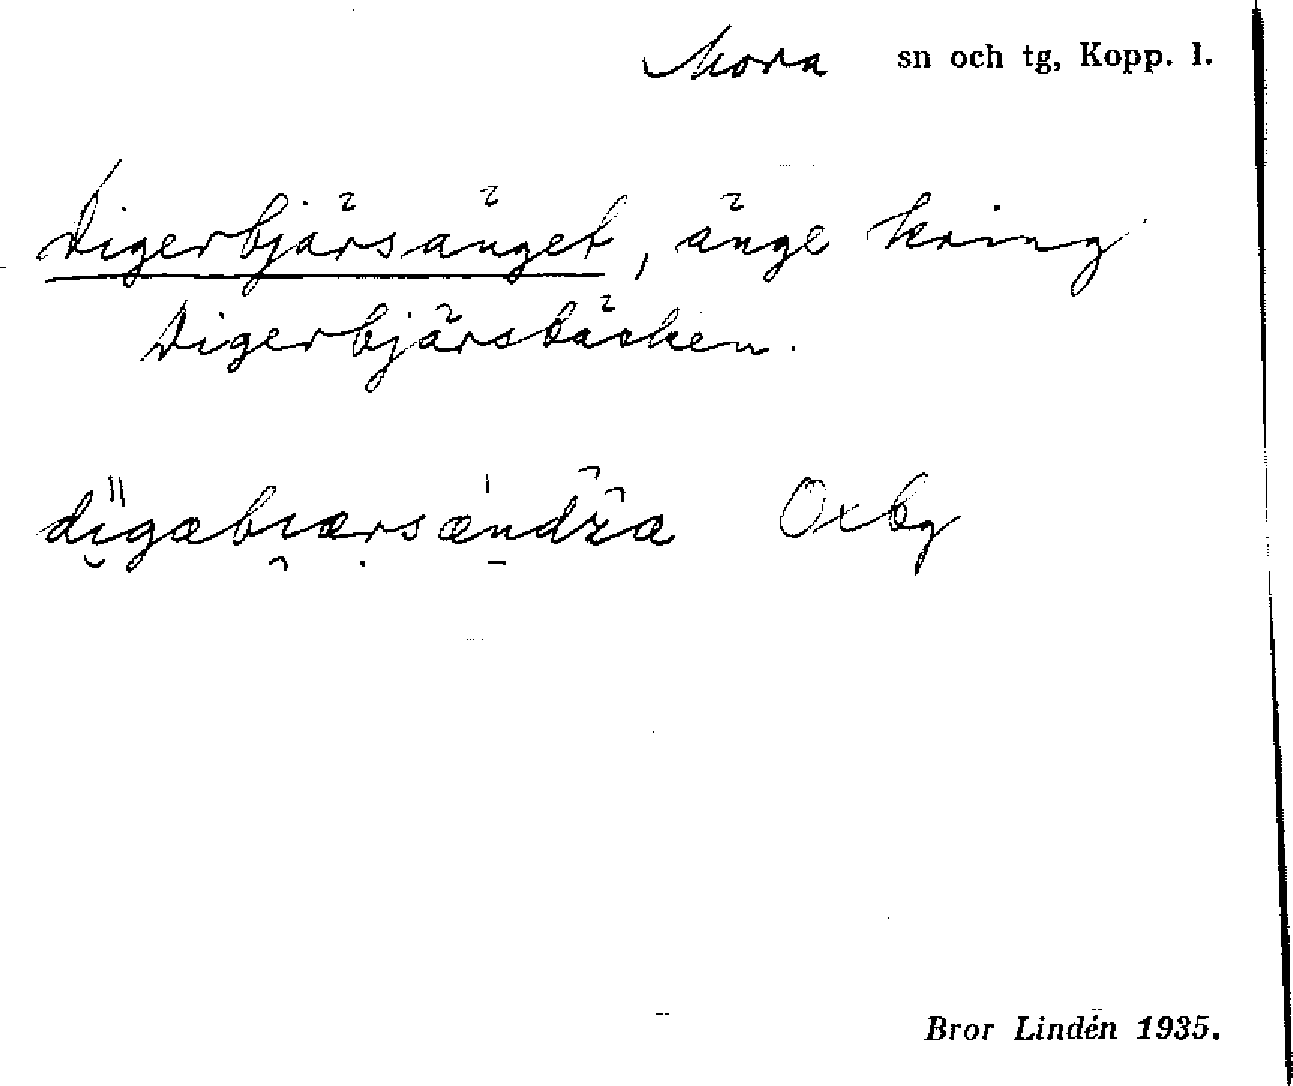 Mora sn och tg, Kopp. l.
Digerbjärsänget, änge kring
Digerbjärsbäcken.
digæbıærsændža Oxby
Bror Lindén 1935.